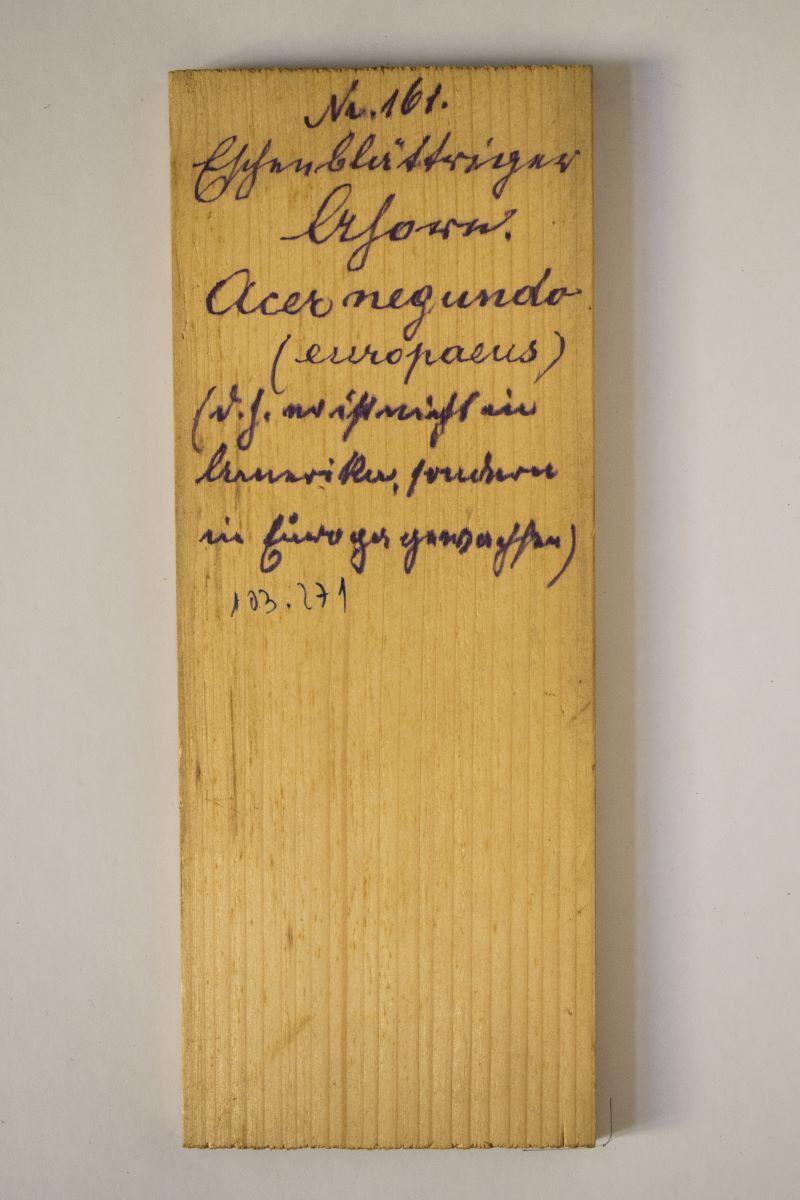 Nr. 161.
Eschenblättriger
Ahorn.
Acer negundo
(europaeus)
(d. h. er ist nicht in
Amerika, sondern
in Europa gewachsen)
103.271